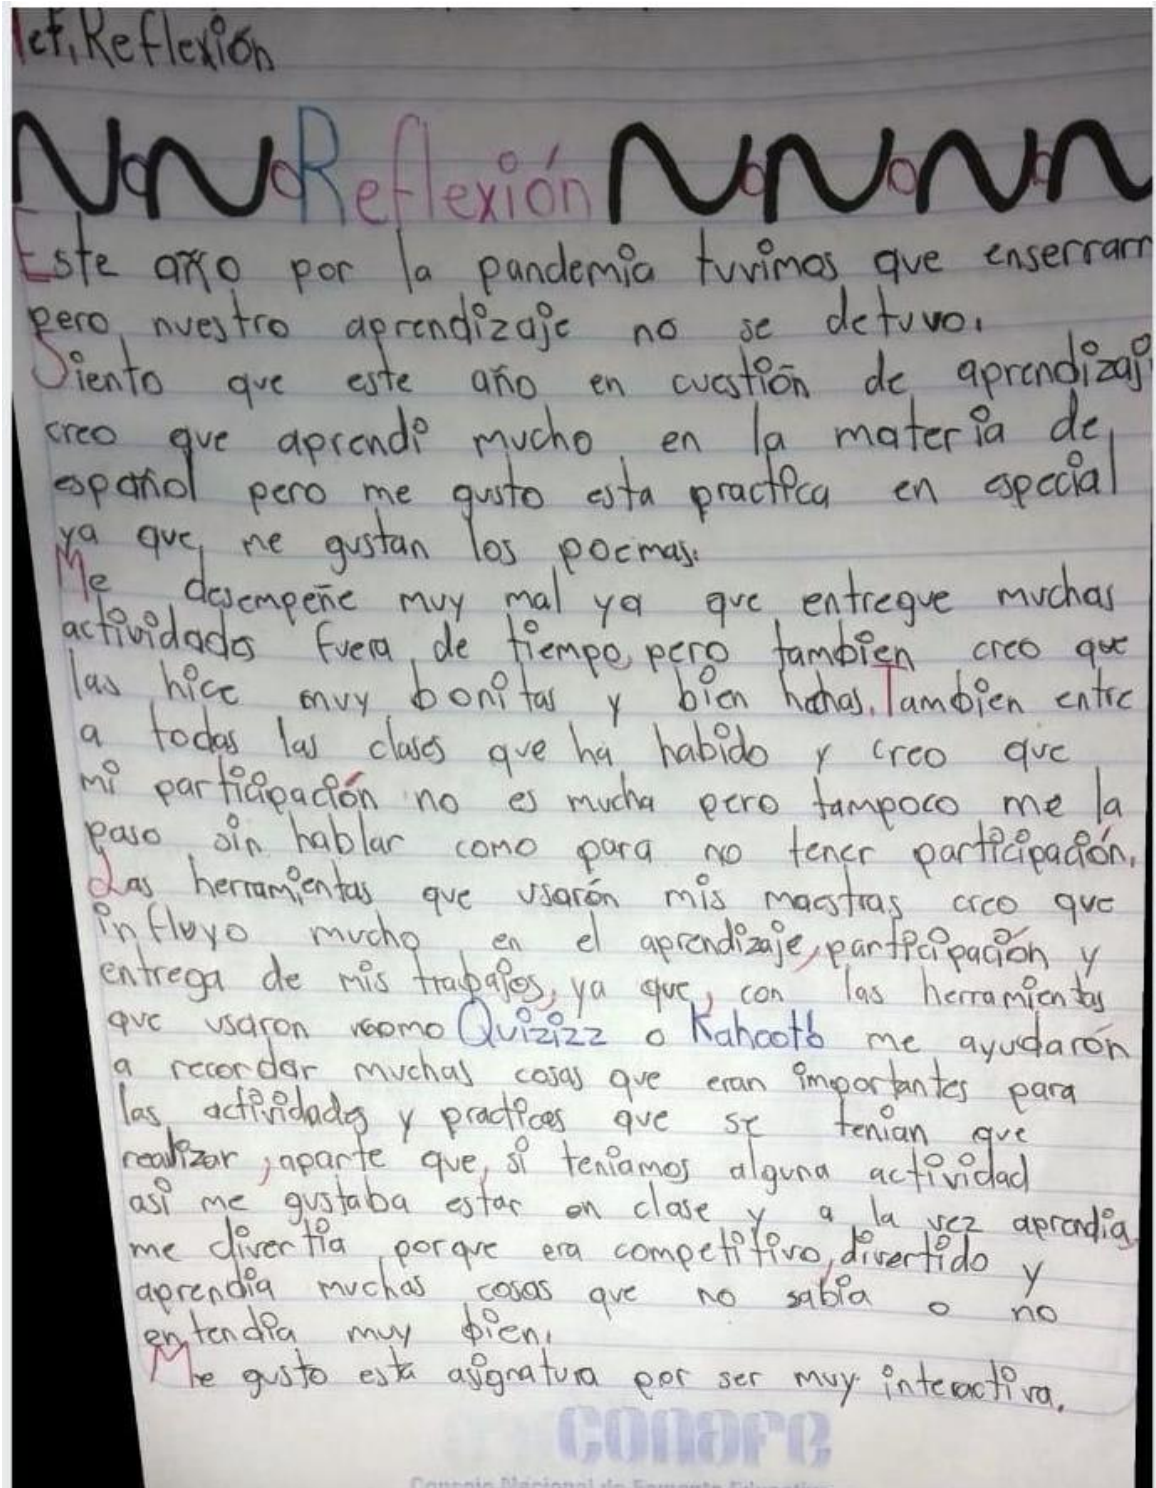 Act, Reflexión
Reflexión
Este año por la pandemia tuvimos que enserrarn
pero nuestro aprendizaje no se detuvo.
Siento que este año en cuestión de aprendizaj
creo que aprendi mucho en la materia de
español pero me gusto esta practica en especial
ya que, me gustan los poemas.
Me desempeñe muy mal ya que entregue muchas
actividades fuera de tiempo, pero tambien creo que
las hice muy bonitas y bien hechas. Tambien entre
a todas las clases que ha habido y creo que
mi participación no es mucha pero tampoco me la
paso sin hablar como para no tener participación.
Las herramientas que usarón mis maestras creo que
influyo mucho en el aprendizaje, participación y
entrega de mis trabajos, ya que, con las herramientas
que usaron como Quizizz o Kahoot me ayudarón
a recordar muchas cosas que eran importantes para
las actividades y practicas que se tenian que
realizar, aparte que, si teniamos alguna actividad
asi me gustaba estar en clase y a la vez aprendia,
me divertia porque era competitivo, divertido y
aprendia muchas cosas que no sabia o no
entendia muy bien.
Me gusto esta asignatura por ser muy interactiva.
conafe
Consejo Nacional de Fomento Educativo